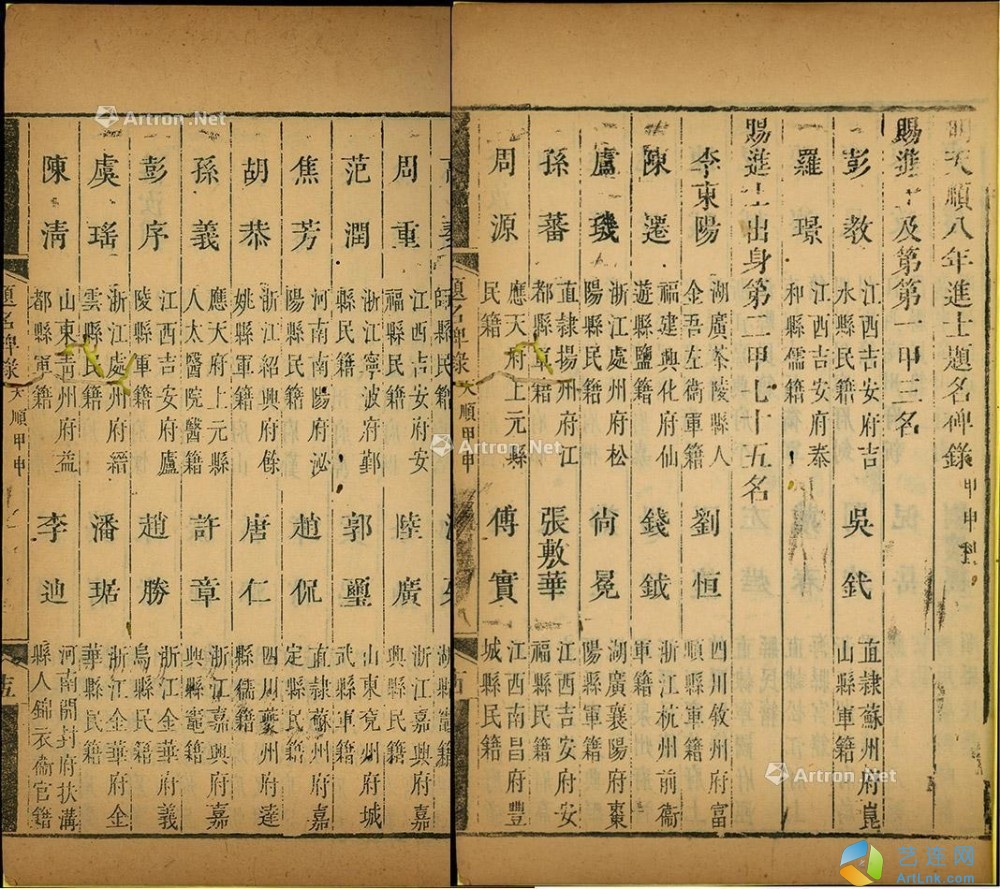 明天順八年進士題名碑錄 甲申科
賜進士及第第一甲三名
彭教 江西吉安府吉水縣民籍 吳釴 直隷蘇州府崑山縣軍籍
羅璟 江西吉安府泰和縣儒籍
賜進士出身第二甲七十五名
李東陽 湖廣茶陵縣人金吾左衞軍籍 劉恒 四川敘州府富順縣軍籍
陳遷 福建興化府仙遊縣鹽籍 錢鉞 浙江杭州前衞軍籍
盧璣 浙江處州府松陽縣民籍 尙冕 湖廣襄陽府棗陽縣軍籍
孫蕃 直隷揚州府江都縣軍籍 張敷華 江西吉安府安福縣民籍
周源 應天府上元縣民籍 傅實 江西南昌府豐城縣民籍
題名碑錄 天順甲申
周重 江西吉安府安福縣民籍 陸廣 浙江嘉興府嘉興縣民籍
范潤 浙江寧波府鄞縣民籍 郭璽 山東兗州府城武縣軍籍
焦芳 河南南陽府泌陽縣民籍 趙侃 直隷蘇州府嘉定縣民籍
胡恭 浙江紹興府餘姚縣軍籍 唐仁 四川夔州府達縣儒籍
孫義 應天府上元縣人太醫院醫籍 許章 浙江嘉興府嘉興縣竈籍
彭序 江西吉安府廬陵縣軍籍 趙勝 浙江金華府義烏縣民籍
虞瑤 浙江處州府縉雲縣民籍 潘琚 浙江金華府金華縣民籍
陳淸 山東靑州府益都縣軍籍 李迪 河南開封府扶溝縣人錦衣衞官籍
題名碑錄 天順甲申
Artron.Net
Artron.Net
Artron.Net
艺连网
ArtLnk.com